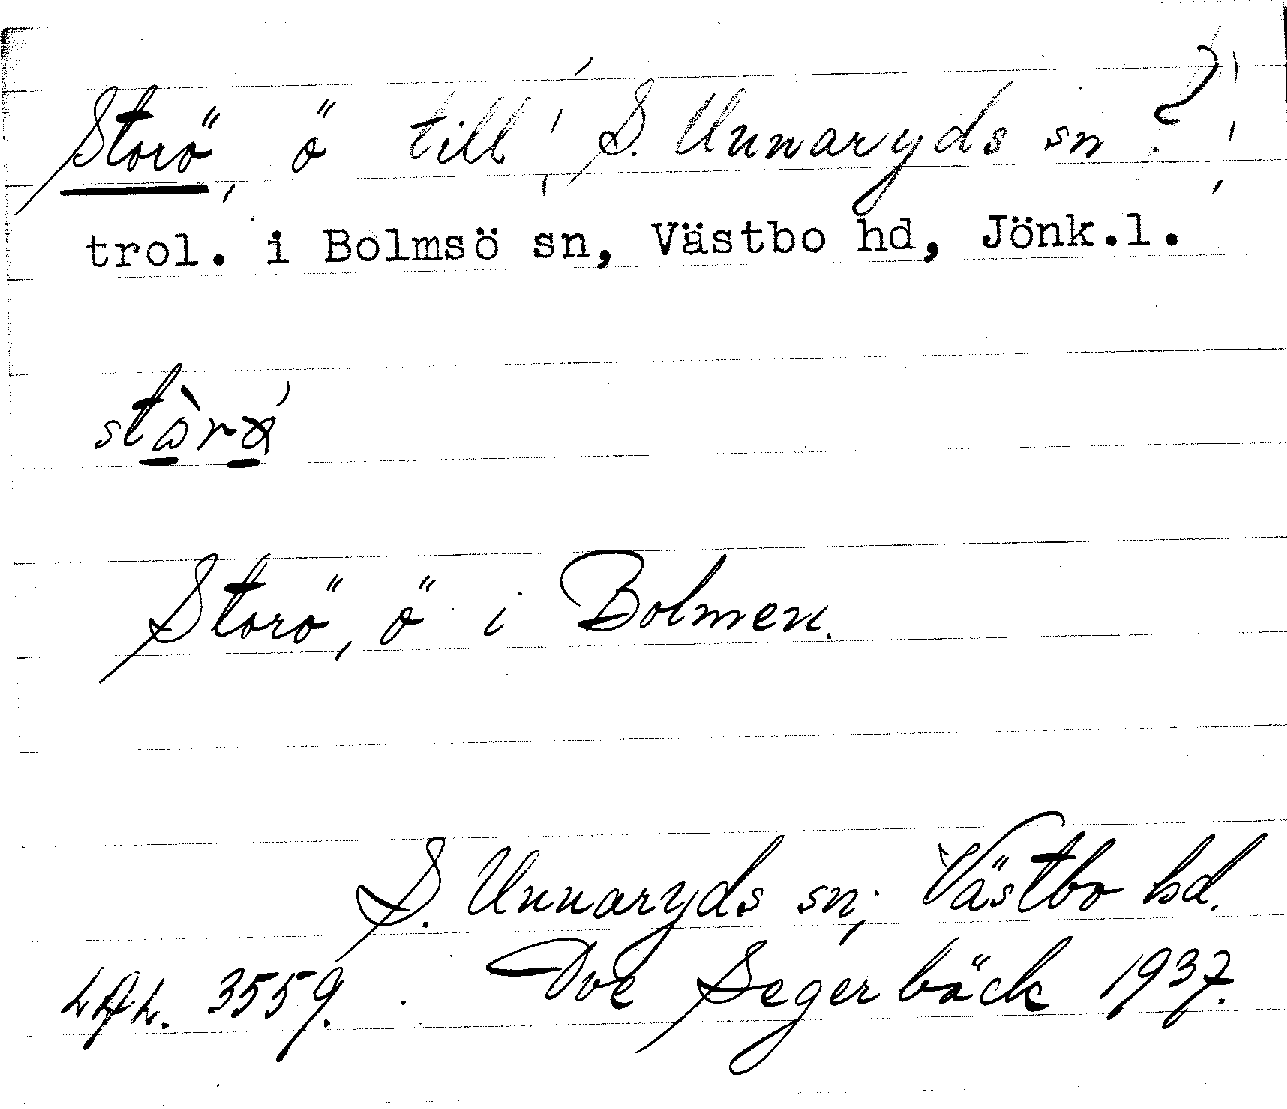 Storö, ö till S. Unnaryds sn?
trol. i Bolmsö sn, Västbo hd, Jönk.l.
Storö, ö i Bolmen.
S. Unnaryds sn; Västbo hd.
3559. Segerbäck 1937.